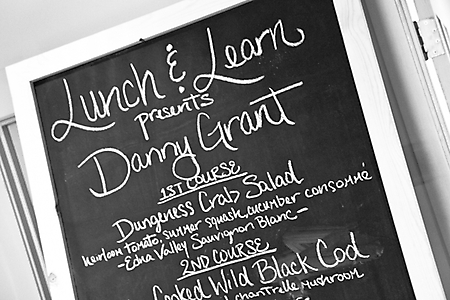 Lunch & Learn
presents
Danny Grant
1ST COURSE
Dungeness Crab Salad
heirloom tomato, summer squash, cucumber consommé
-Edna Valley Sauvignon Blanc-
2ND COURSE
Cooked Wild Black Cod
chantrelle mushroom